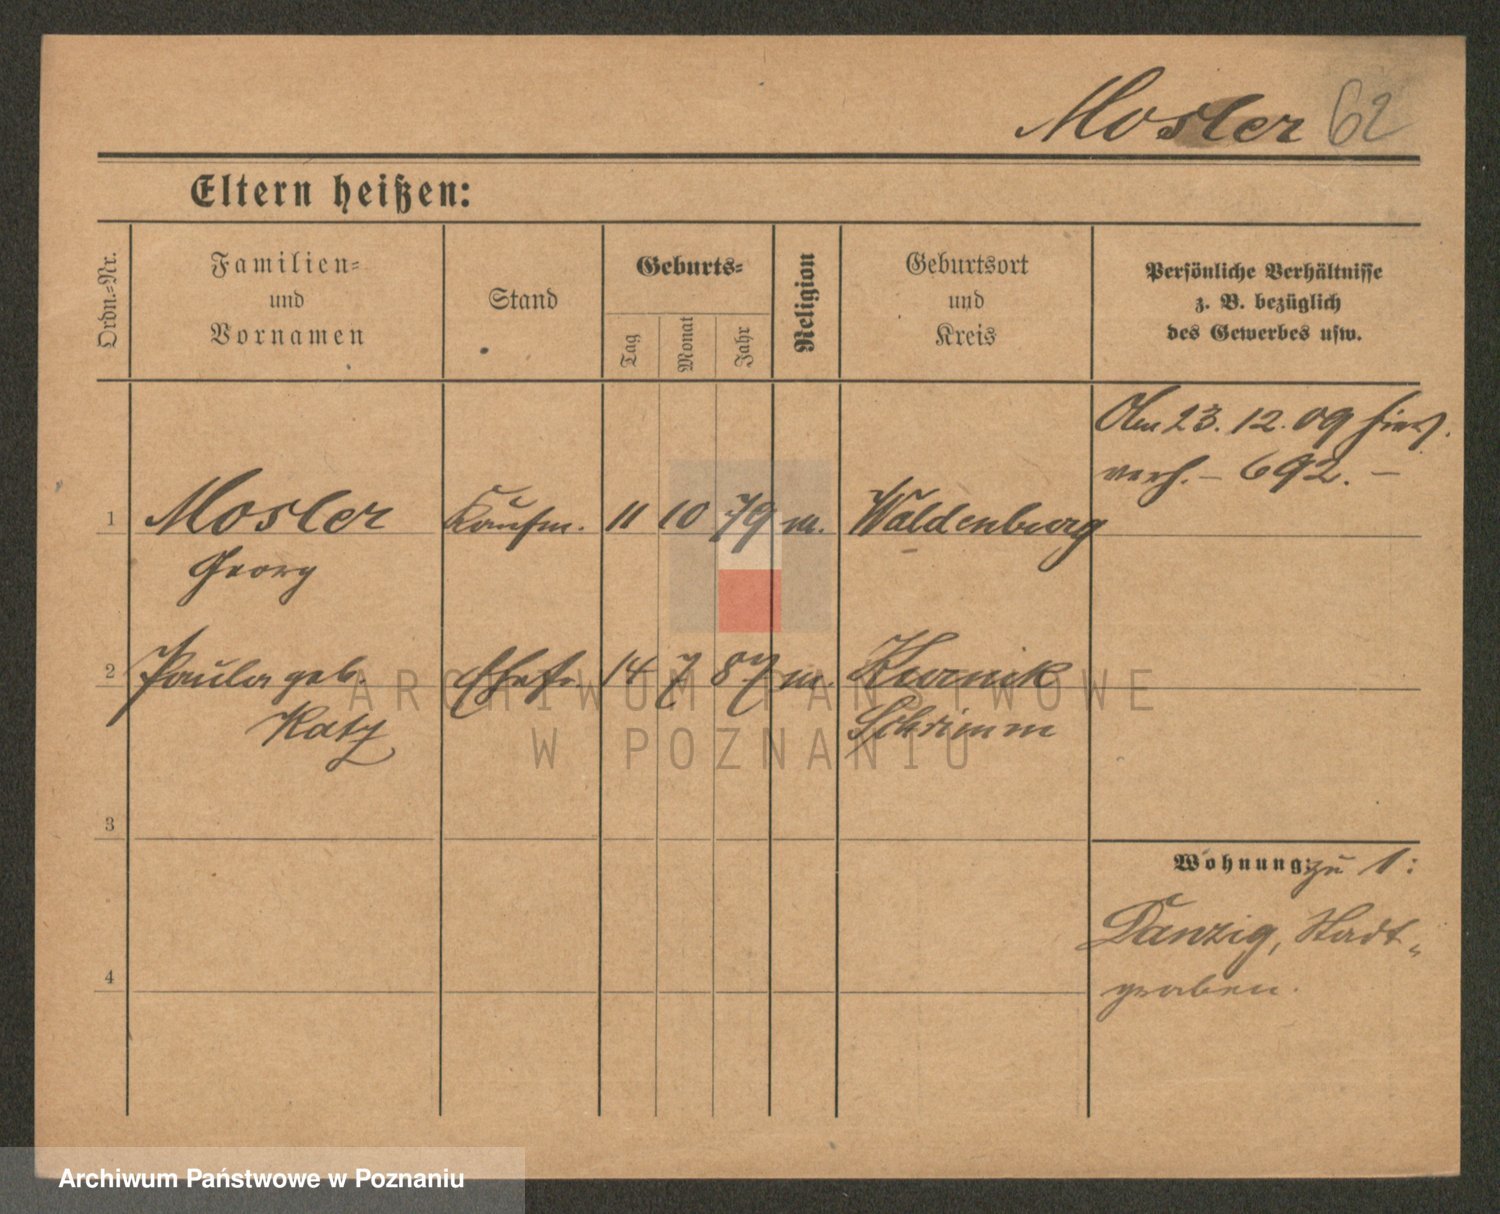 Mosler 62
Eltern heißen:
Ordn.-Nr.
Familien-
und
Vornamen
Stand
Geburts-
Tag
Monat
Jahr
Religion
Geburtsort
und
Kreis
Persönliche Verhältnisse
z. B. bezüglich
des Gewerbes usw.
Am 23. 12. 09 hier
verh. – 692. –
1 Mosler Kaufm. 11 10 79 m. Waldenburg
Georg
2 Paula geb. Ehefr. 14 7 87 m. Kurnik
Katz Schrimm
3
Wohnung: zu 1:
Danzig, Stadt-
graben.
4
ARCHIWUM PAŃSTWOWE
W POZNANIU
Archiwum Państwowe w Poznaniu